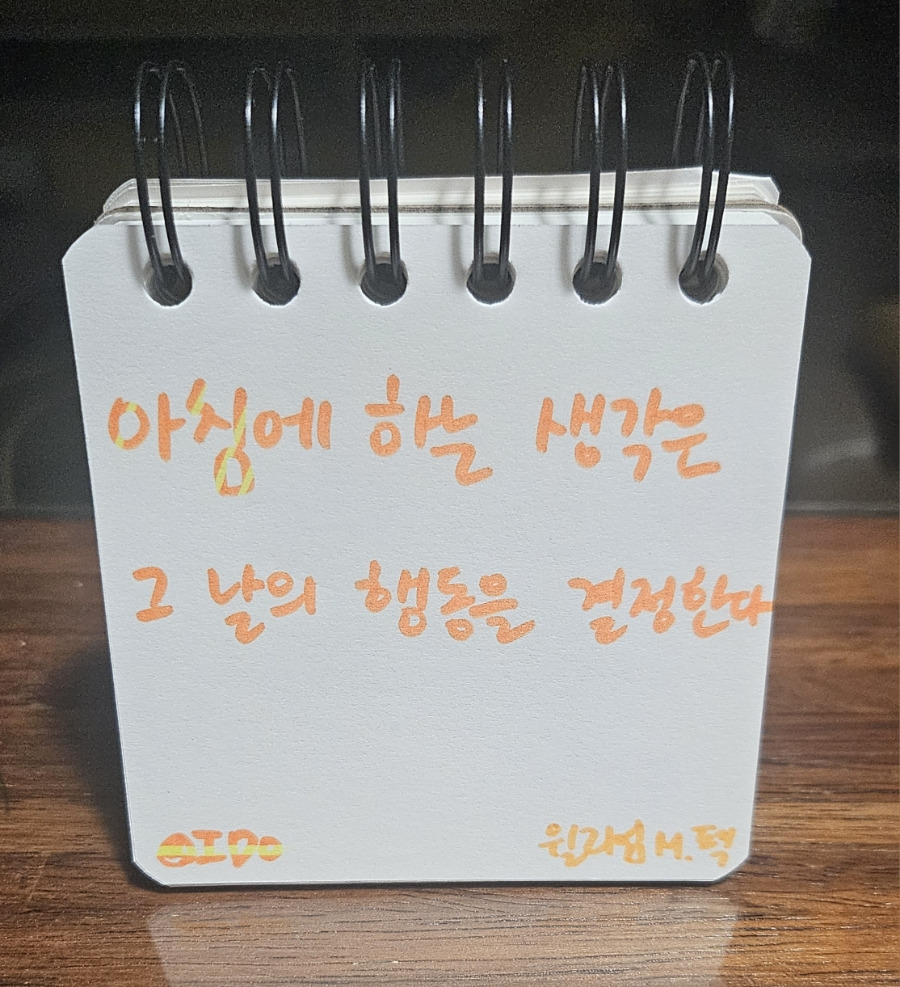 아침에 하는 생각은
그 날의 행동을 결정한다
윌리엄 M. 펙